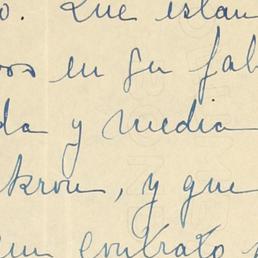 o. Que estan
os en su fab
da y media
kron, y que
un contrato